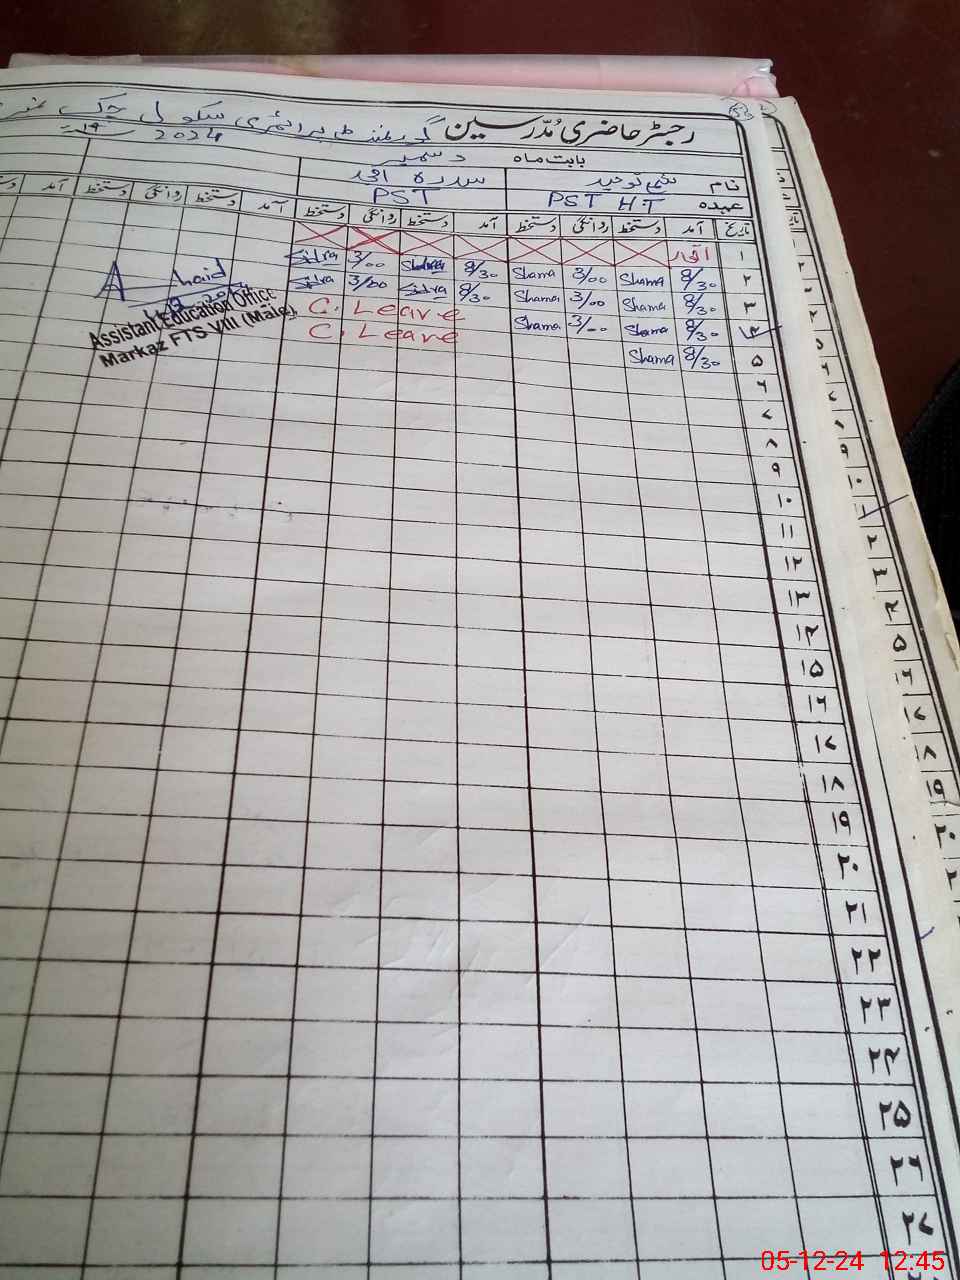 رجسٹر حاضری مُدّرسین گورنمنٹ پرائمری سکول چک نمبر
بابت ماہ دسمبر 2024
نام شمع توحید سدرہ
عہدہ PST HT PST
تاریخ آمد دستخط روانگی دستخط آمد دستخط روانگی دستخط آمد دستخط روانگی دستخط آمد
۱ اتوار
۲ 8/30 Shama 3/00 Shama 8/30 Sidra 3/00 Sidra
۳ 8/30 Shama 3/00 Shama 8/30 Sidra 3/00 Sidra
۴ 8/30 Shama 3/00 Shama C. Leave
۵ 8/30 Shama C. Leave
Assistant Education Office
Markaz FTS-VIII (Male)
۶
۷
۸
۹
۱۰
۱۱
۱۲
۱۳
۱۴
۱۵
۱۶
۱۷
۱۸
۱۹
۲۰
۲۱
۲۲
۲۳
۲۴
۲۵
۲۶
۲۷
05-12-24 12:45